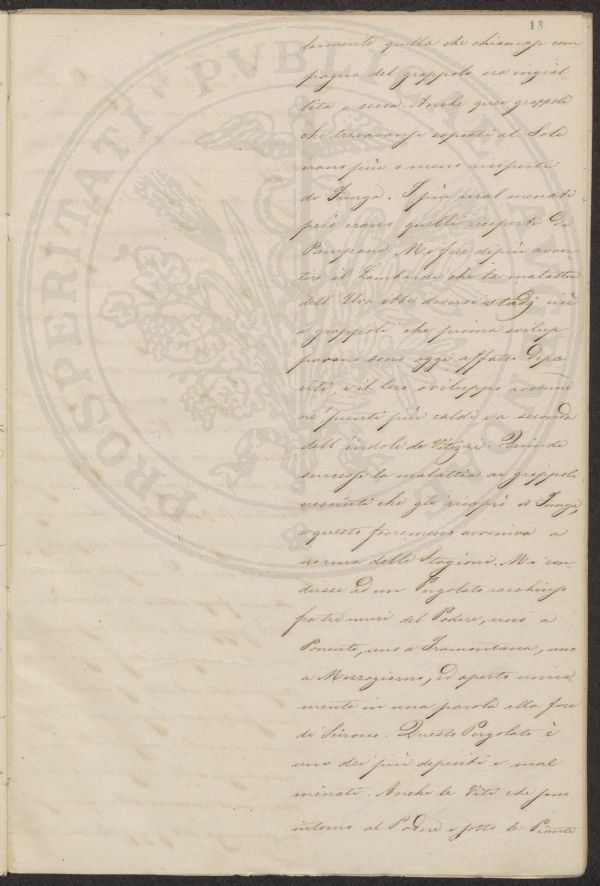 18
lamente quella che chiamasi com
pagna del grappolo era ingial
lita e secca. Anche quei grappoli
che trovavansi esposti al Sole
erano più o meno ricoperti
di Fungo. I più mal menati
però erano quelli ricoperti da
Pampani. Mi fece dipiù avver
tire il Lombardi che la malattia
dell'Uva ebbe diversi stadj cioè
i grappoli che prima svilup
parono sono oggi affatto depe
riti, e il loro sviluppo avvenne
ne' punti più caldi, e a seconda
dell'indole de' Vitizzi. Quindi
successe la malattia ai grappoli
cresciuti che gli ricoprì di Fungo,
e questo fenomeno avveniva a
norma delle Stagioni. Mi con
dusse ad un Pergolato racchiuso
fra tre muri del Podere, uno a
Ponente, uno a Tramontana, uno
a Mezzogiorno, ed aperto unica
mente in una parola alla foce
di Scirocco. Questo Pergolato è
uno dei più deperiti e mal
menati. Anche le Viti che sono
intorno al Podere e sotto le Piante
PROSPERITATI PVBLICAE